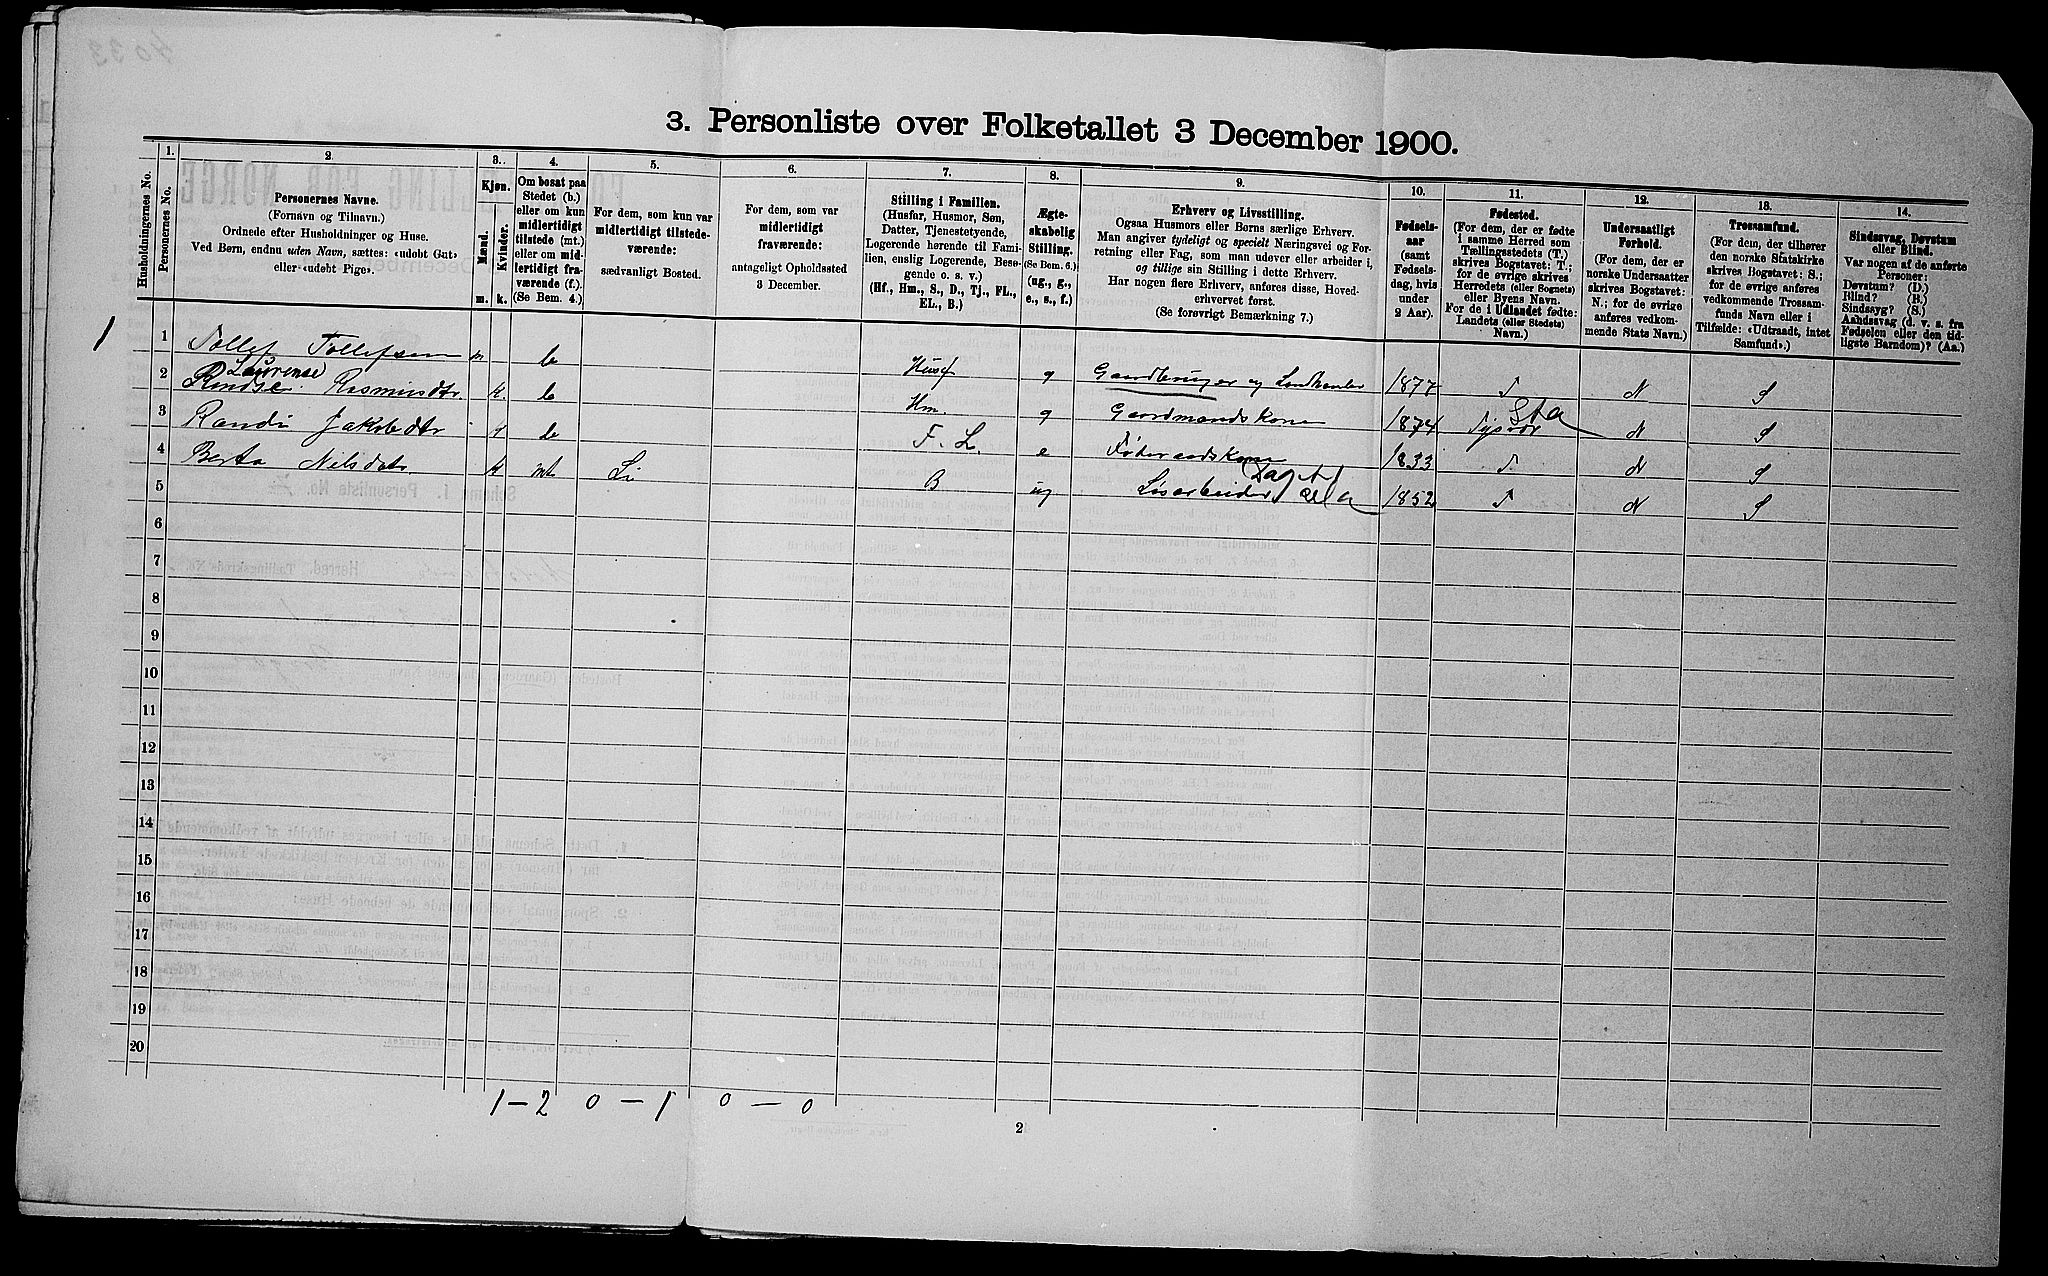 3. Personliste over Folketallet 3 December 1900.
Husholdningernes No.
1.
Personernes No.
2.
Personernes Navne.
(Fornavn og Tilnavn.)
Ordnede efter Husholdninger og Huse.
Ved Børn, endnu uden Navn, sættes: «udøbt Gut»
eller «udøbt Pige».
3.
Kjøn.
Mænd.
Kvinder.
m.
k.
4.
Om bosat paa
Stedet (b.)
eller om kun
midlertidigt
tilstede (mt.)
eller om mid-
lertidigt fra-
værende (f.).
(Se Bem. 4.)
5.
For dem, som kun var
midlertidigt tilstede-
værende:
sædvanligt Bosted.
6.
For dem, som var
midlertidigt
fraværende:
antageligt Opholdssted
3 December.
7.
Stilling i Familien.
(Husfar, Husmor, Søn,
Datter, Tjenestetyende,
Logerende hørende til Fami-
lien, enslig Logerende, Besø-
gende o. s. v.)
(Hf., Hm., S., D., Tj., FL.,
EL., B.)
8.
Ægte-
skabelig
Stilling.
(Se Bem. 6.)
(ug., g.,
e., s., f.)
9.
Erhverv og Livsstilling.
Ogsaa Husmors eller Børns særlige Erhverv.
Man angiver tydeligt og specielt Næringsvei og For-
retning eller Fag, som man udøver eller arbeider i,
og tillige sin Stilling i dette Erhverv.
Har nogen flere Erhverv, anføres disse, Hoved-
erhvervet først.
(Se forøvrigt Bemærkning 7.)
10.
Fødsels-
aar
(samt
Fødsels-
dag, hvis
under
2 Aar).
11.
Fødested.
(For dem, der er fødte
i samme Herred som
Tællingsstedets (T.)
skrives Bogstavet: T.;
for de øvrige skrives
Herredets (eller Sognets)
eller Byens Navn.
For de i Udlandet fødte:
Landets (eller Stedets)
Navn.)
12.
Undersaatligt
Forhold.
(For dem, der er
norske Undersaatter
skrives Bogstavet:
N.; for de øvrige
anføres vedkom-
mende Stats Navn.)
13.
Trossamfund.
(For dem, der tilhører
den norske Statskirke
skrives Bogstavet: S.;
for de øvrige anføres
vedkommende Trossam-
funds Navn eller i
Tilfælde: «Udtraadt, intet
Samfund».)
14.
Sindssvag, Døvstum
eller Blind.
Var nogen af de anførte
Personer:
Døvstum? (D.)
Blind? (B.)
Sindssyg? (S.)
Aandssvag (d. v. s. fra
Fødselen eller den tid-
ligste Barndom)? (Aa.)
1
1 Tollef Tollefsen m b Husf g Gaardbruger og 1877 T N S
Laurense
2 Rasmusdtr. k. b Hm. g Gaardmandskone 1874 Tysvær N S
3 Randi Jakobdtr b F. L. e Føderaadskone 1833 T N S
4 Berta Nilsdatr k mt Li B ug Løsarbeider 1852 T N S
5
6
7
8
9
10
11
12
13
14
15
16
17
18
19
20
1 – 2 0 – 1 0 – 0
2